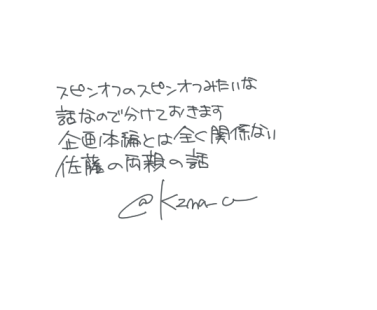 スピンオフのスピンオフみたいな
話なので分けておきます
企画本編とは全く関係ない
佐藤の両親の話